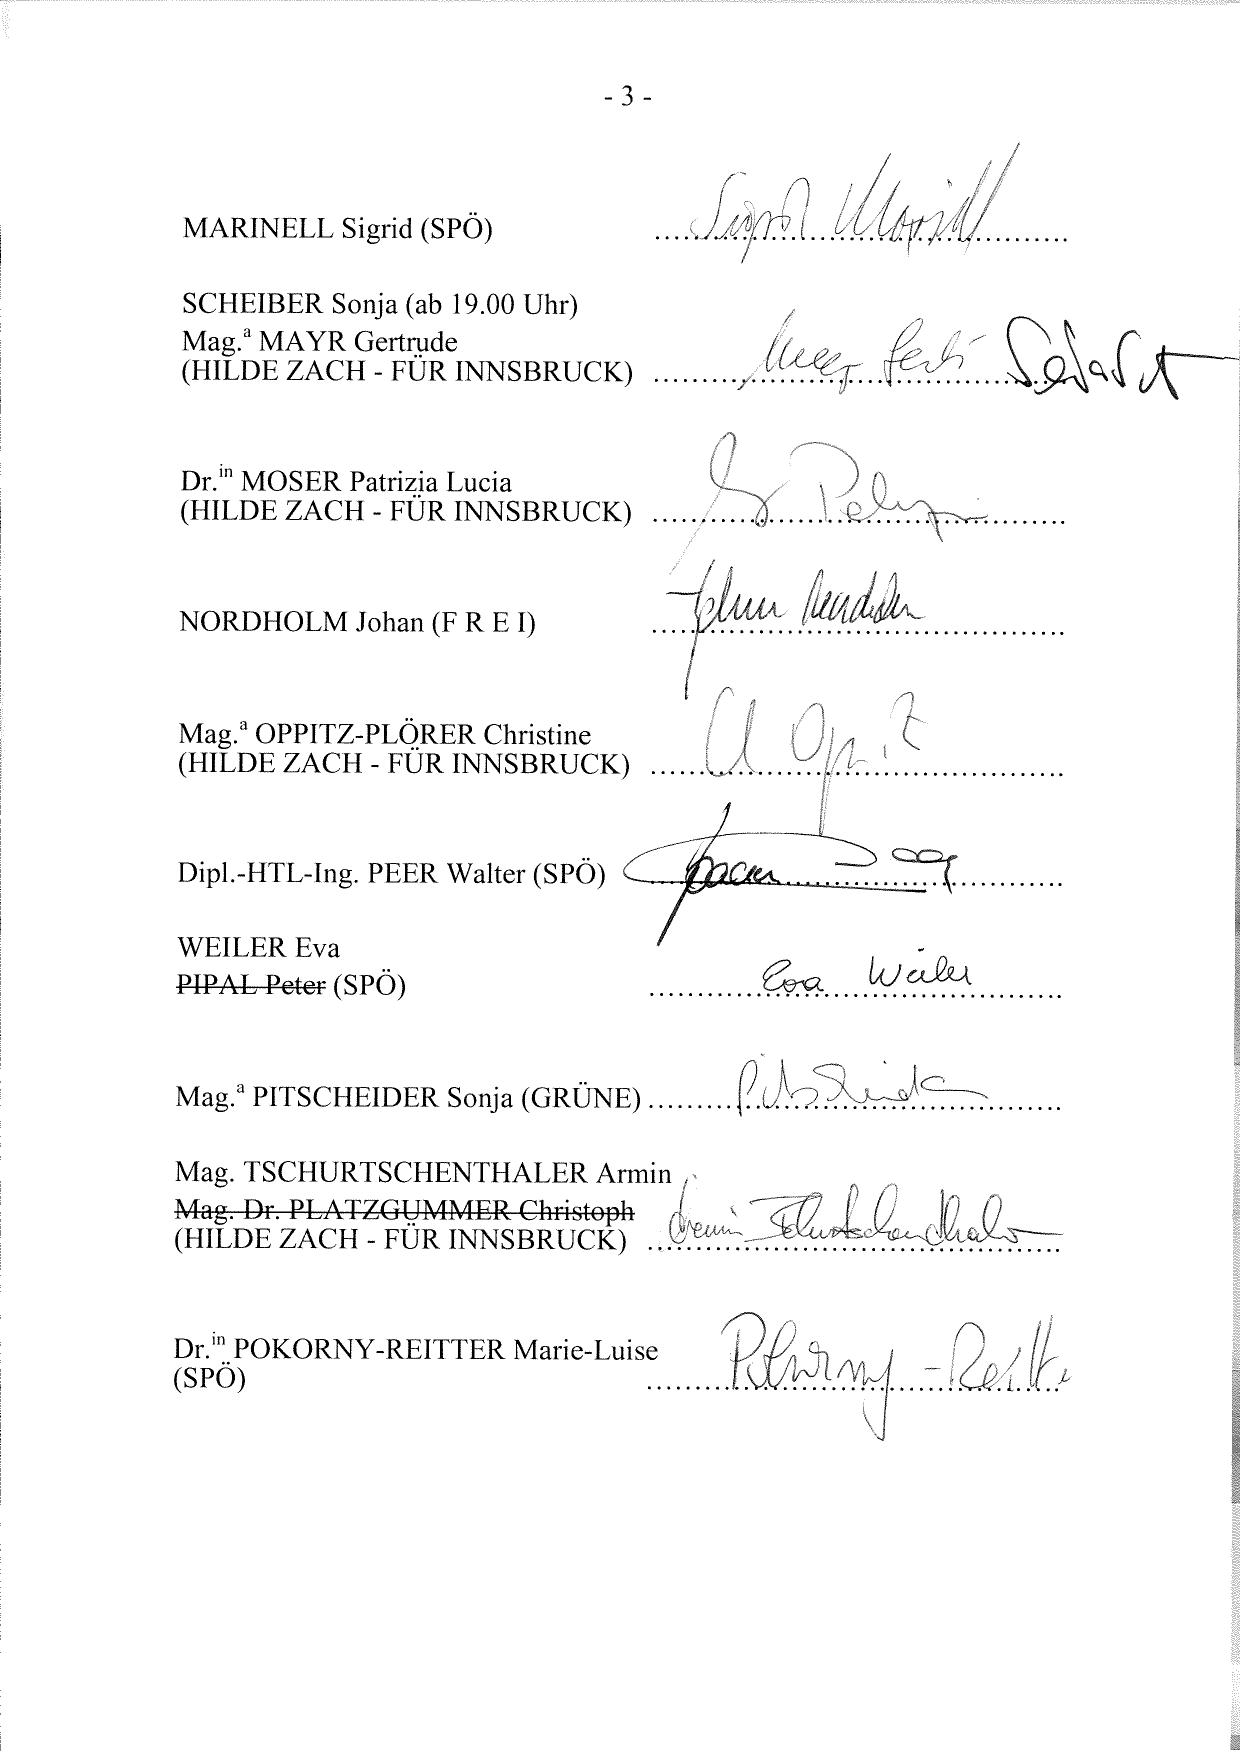 - 3 -
MARINELL Sigrid (SPÖ) ........................................
SCHEIBER Sonja (ab 19.00 Uhr)
Mag.ª MAYR Gertrude
(HILDE ZACH - FÜR INNSBRUCK) ........................................
Dr.in MOSER Patrizia Lucia
(HILDE ZACH - FÜR INNSBRUCK) ........................................
NORDHOLM Johan (F R E I) ........................................
Mag.ª OPPITZ-PLÖRER Christine
(HILDE ZACH - FÜR INNSBRUCK) ........................................
Dipl.-HTL-Ing. PEER Walter (SPÖ) ........................................
WEILER Eva
PIPAL Peter (SPÖ) Eva Weiler
Mag.ª PITSCHEIDER Sonja (GRÜNE) ........................................
Mag. TSCHURTSCHENTHALER Armin
Mag. Dr. PLATZGUMMER Christoph
(HILDE ZACH - FÜR INNSBRUCK) Armin Tschurtschenthaler
Dr.in POKORNY-REITTER Marie-Luise
(SPÖ) Pokorny-Reitter